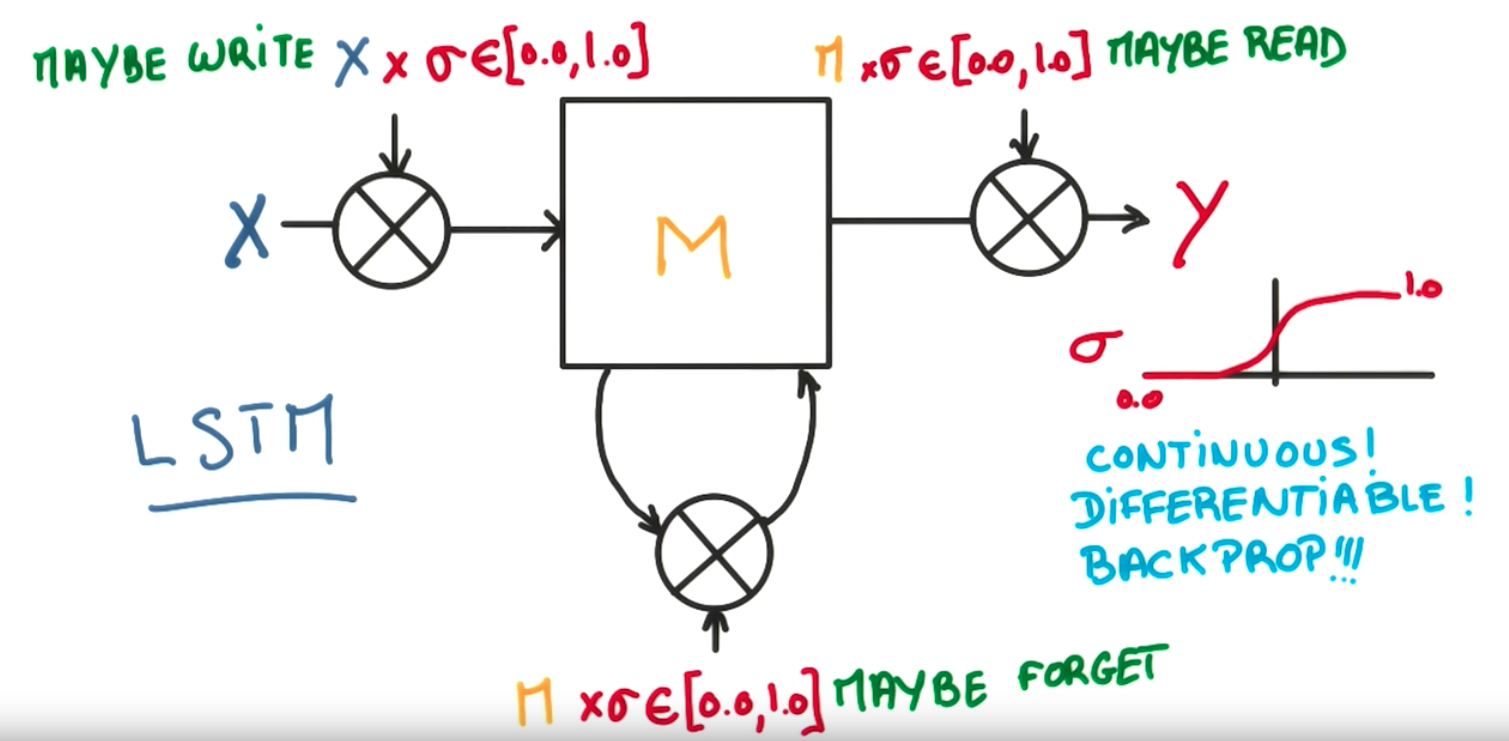 MAYBE WRITE X x σ∈[0.0,1.0]
M xσ∈[0.0,1.0] MAYBE READ
X
M
Y
σ
1.0
0.0
LSTM
CONTINUOUS!
DIFFERENTIABLE!
BACKPROP!!!
M xσ∈[0.0,1.0] MAYBE FORGET